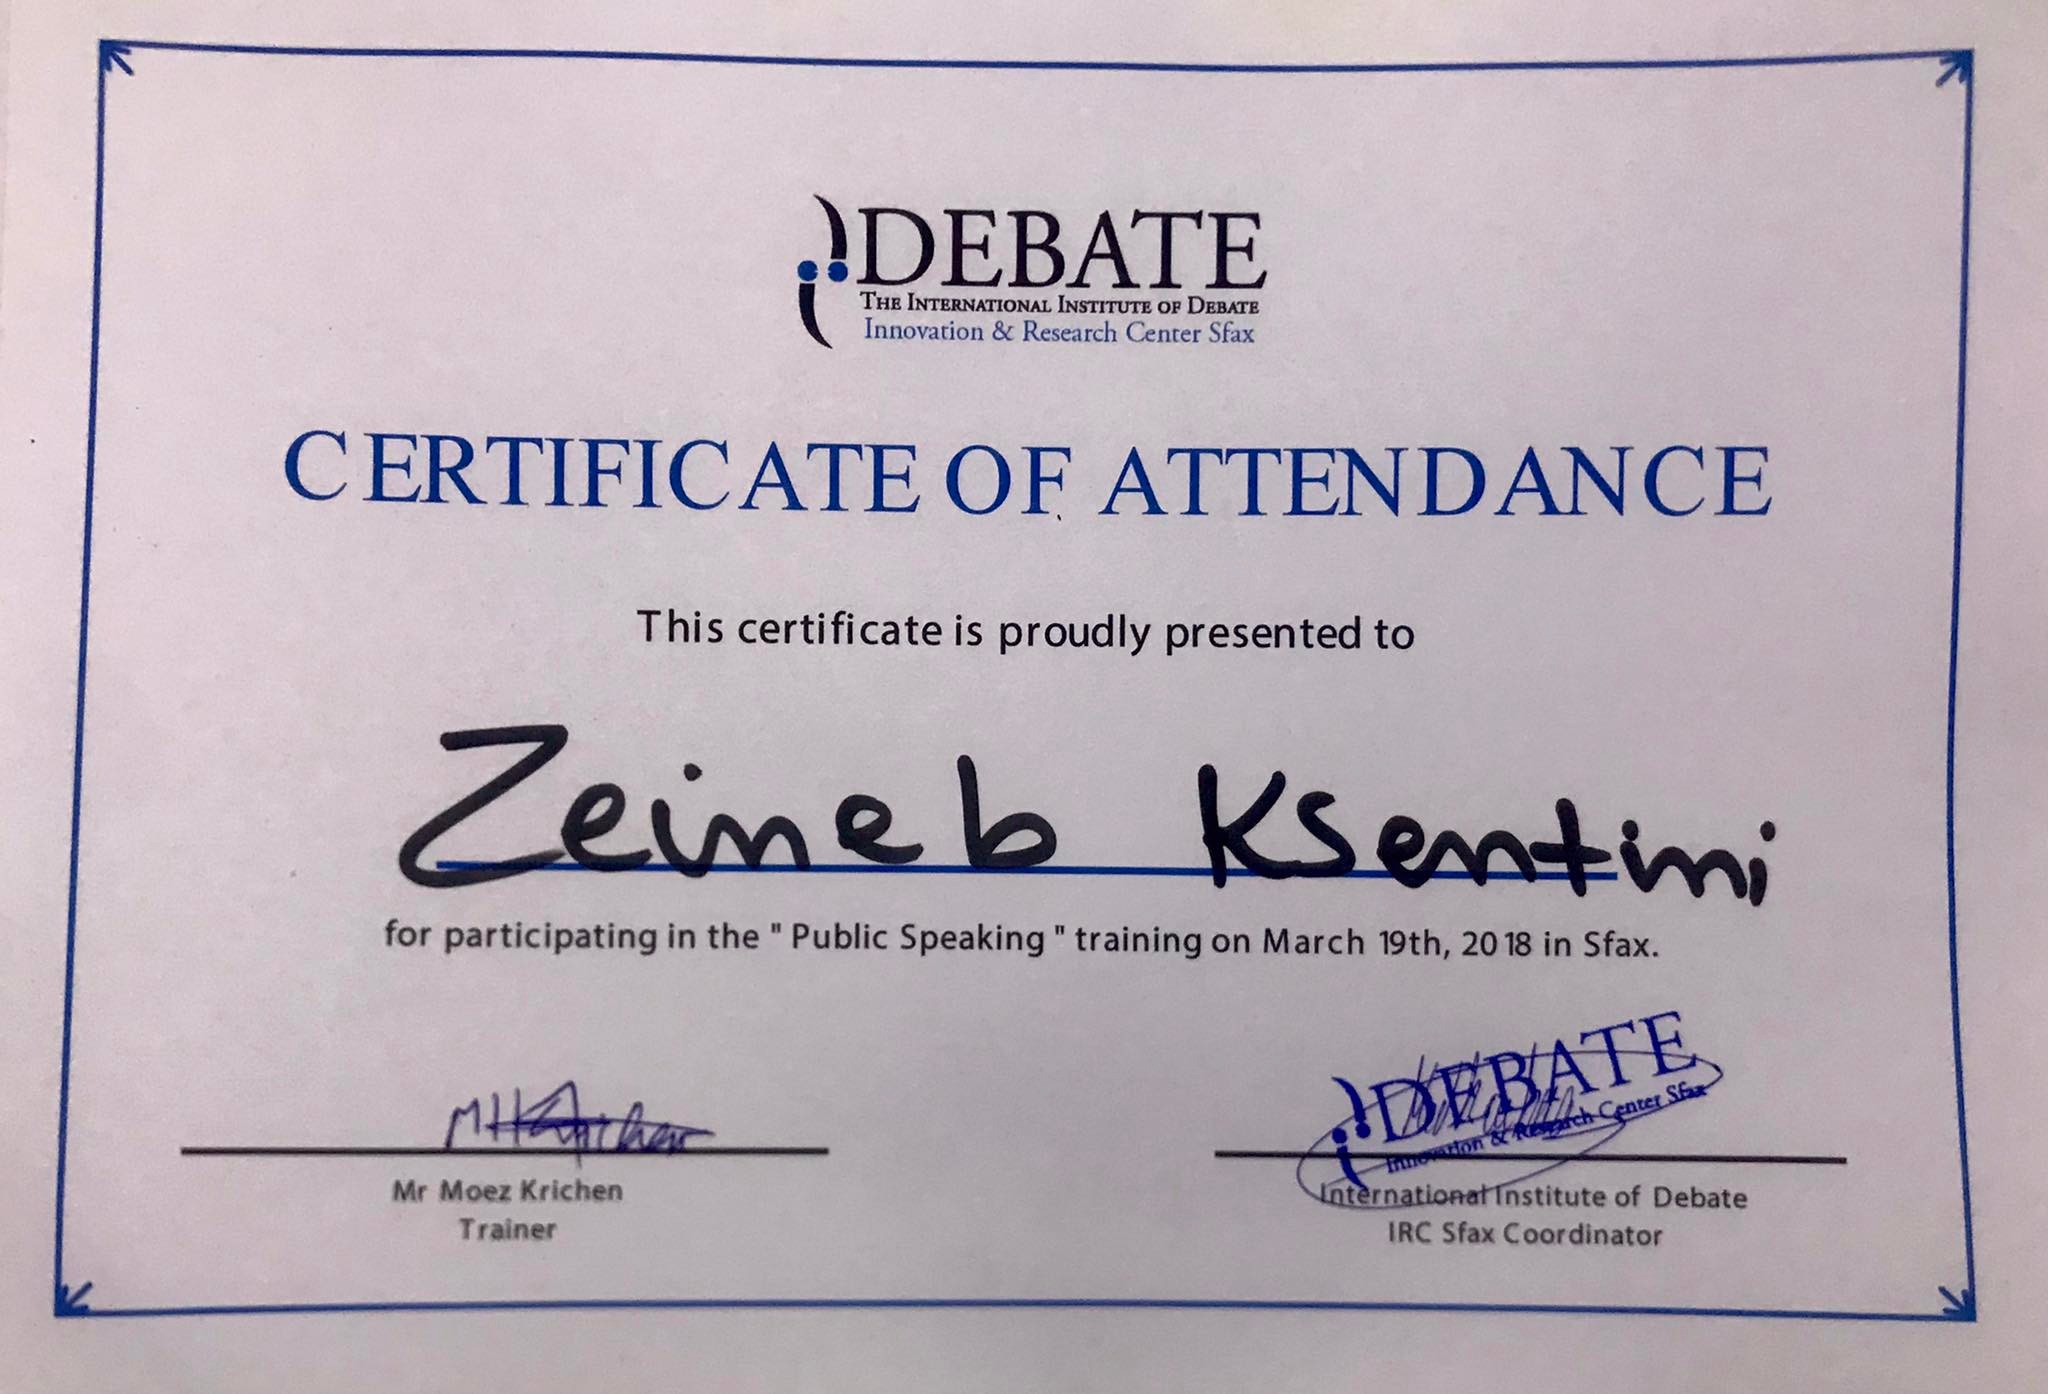 iDEBATE
THE INTERNATIONAL INSTITUTE OF DEBATE
Innovation & Research Center Sfax
CERTIFICATE OF ATTENDANCE
This certificate is proudly presented to
Zeineb Ksentini
for participating in the " Public Speaking " training on March 19th, 2018 in Sfax.
MHKrichen
iDEBATE
Innovation & Research Center Sfax
Mr Moez Krichen
Trainer
International Institute of Debate
IRC Sfax Coordinator